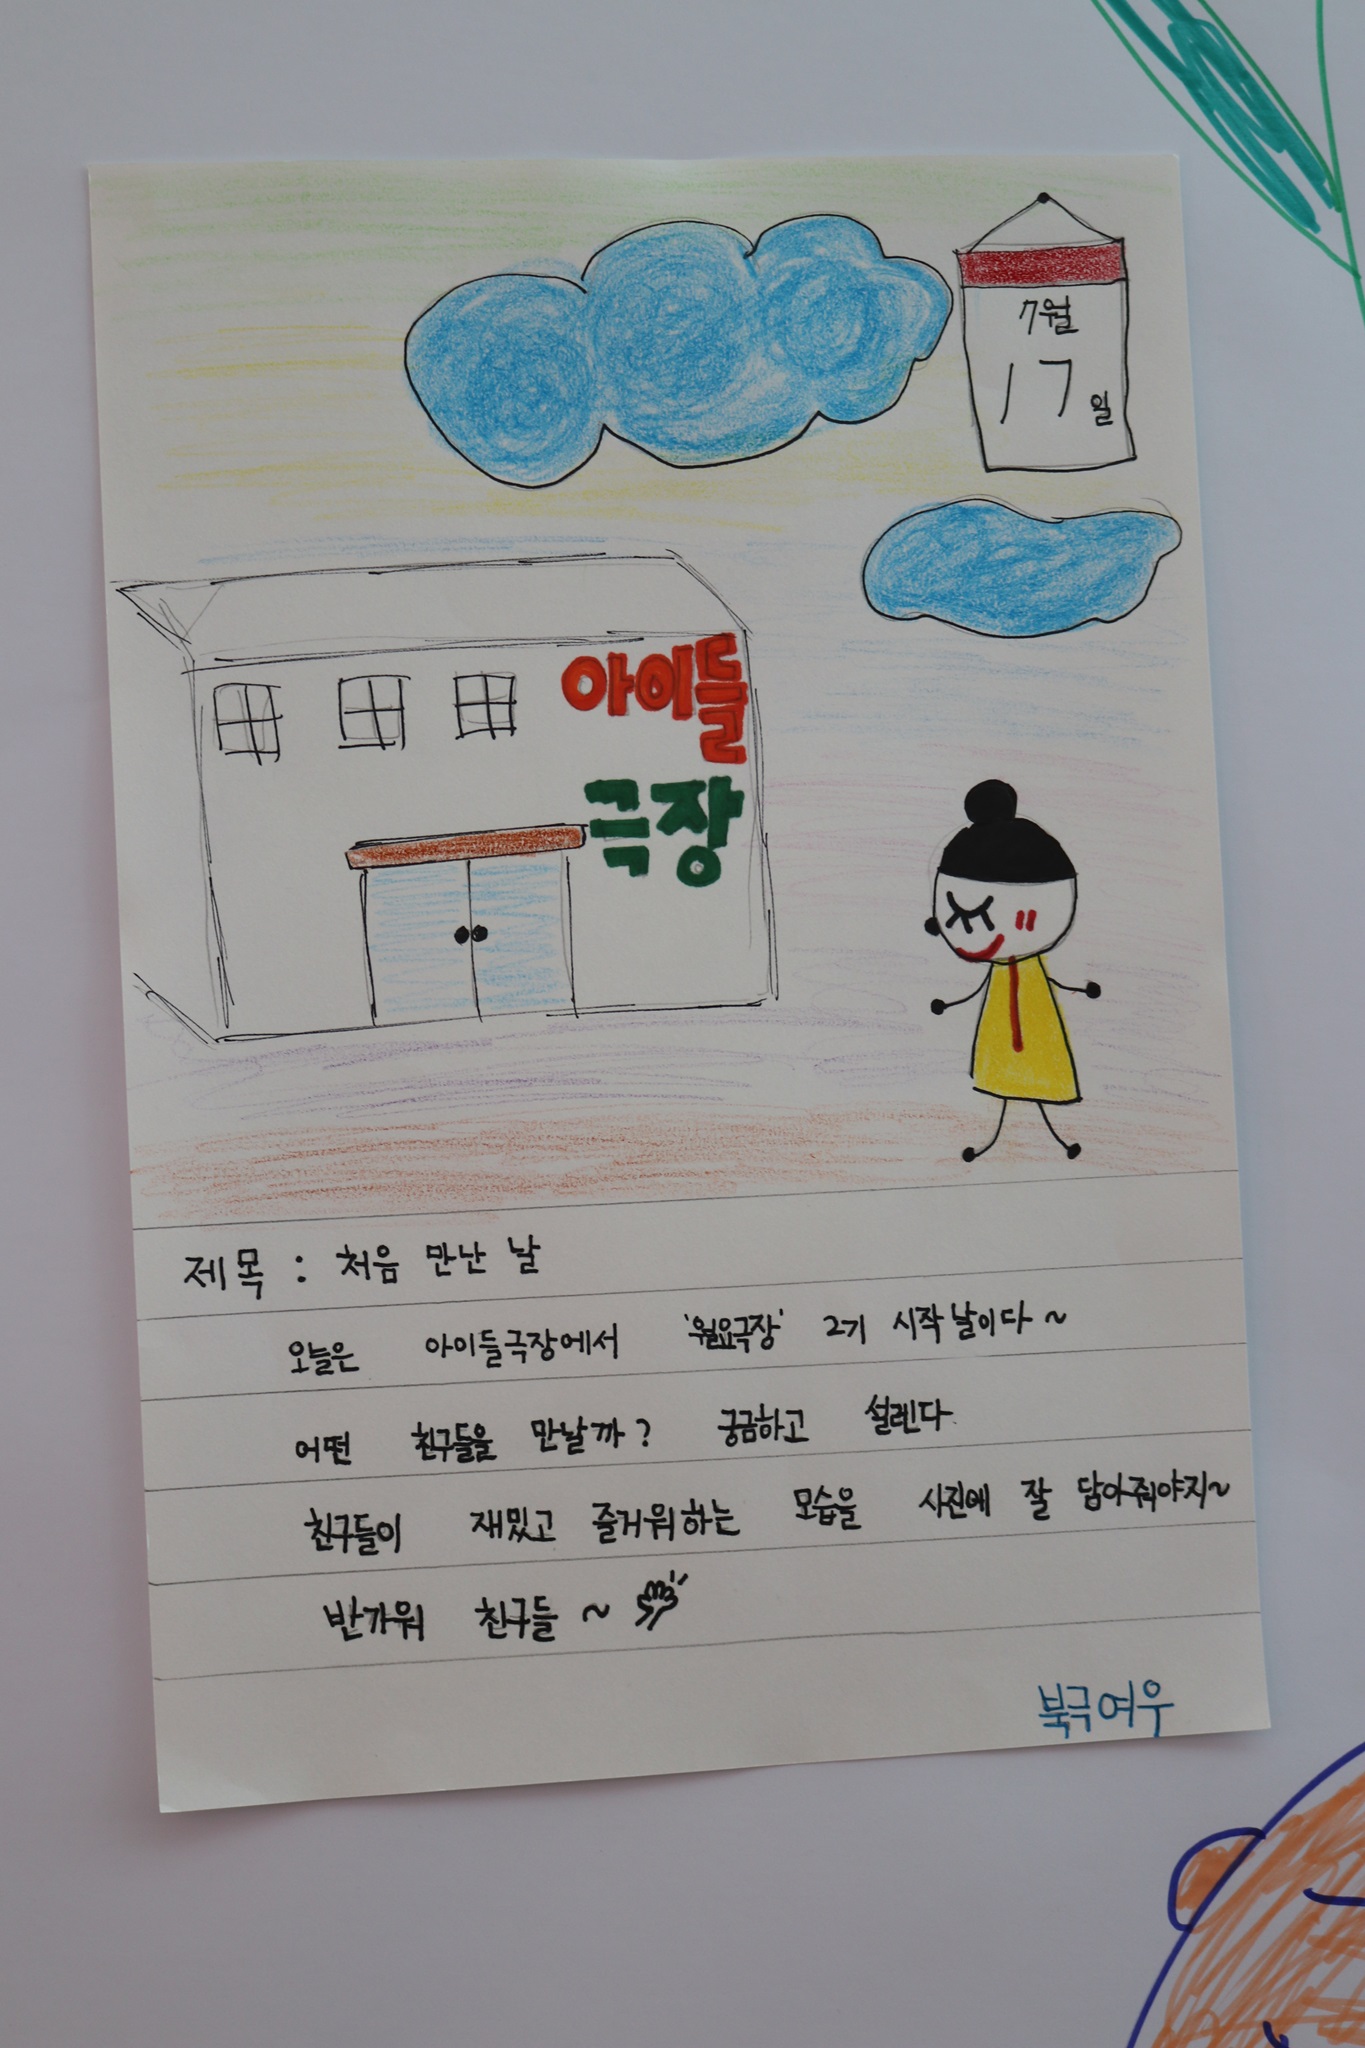 7월
17일
아이들
극장
제목 : 처음 만난 날
오늘은 아이들극장에서 '월요극장' 2기 시작날이다~
어떤 친구들을 만날까? 궁금하고 설렌다.
친구들이 재밌고 즐거워하는 모습을 사진에 잘 담아줘야지~
반가워 친구들~
북극여우